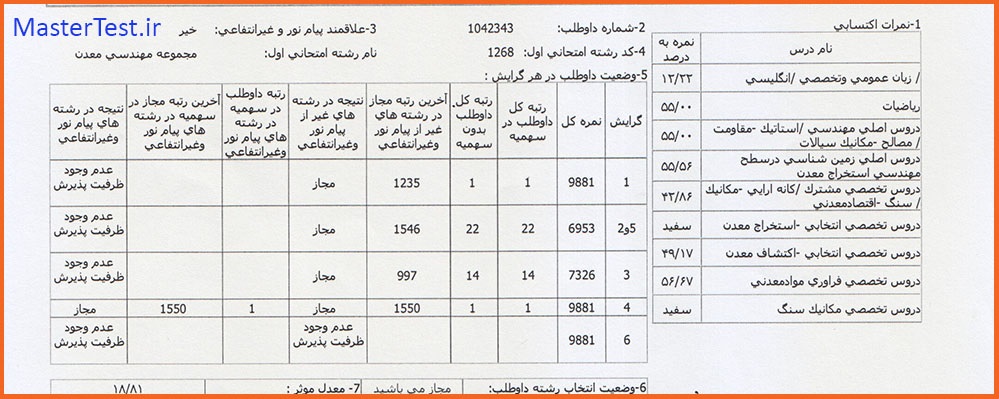 MasterTest.ir
1-نمرات اكتسابي
2-شماره داوطلب: 1042343
3-علاقمند پيام نور و غيرانتفاعي: خير
4-كد رشته امتحاني اول: 1268
نام رشته امتحاني اول: مجموعه مهندسي معدن
5-وضعيت داوطلب در هر گرايش :
نام درس | نمره به درصد
/ زبان عمومي وتخصصي /انگليسي | ۱۳/۳۳
رياضيات | ۵۵/۰۰
دروس اصلي مهندسي /استاتيك -مقاومت
/ مصالح -مكانيك سيالات | ۵۵/۰۰
دروس اصلي زمين شناسي درسطح
مهندسي استخراج معدن | ۵۵/۵۶
دروس تخصصي مشترك /كانه ارايي -مكانيك
/ سنگ -اقتصادمعدني | ۴۳/۸۶
دروس تخصصي انتخابي -استخراج معدن | سفيد
دروس تخصصي انتخابي -اكتشاف معدن | ۴۹/۱۷
دروس تخصصي فراوري موادمعدني | ۵۶/۶۷
دروس تخصصي مكانيك سنگ | سفيد
گرايش | نمره كل | رتبه كل داوطلب در سهميه | رتبه كل داوطلب بدون سهميه | آخرين رتبه مجاز در رشته هاي غير از پيام نور | نتيجه در رشته هاي غير از پيام نور وغيرانتفاعي | رتبه داوطلب در سهميه در رشته هاي پيام نور وغيرانتفاعي | آخرين رتبه مجاز در سهميه در رشته هاي پيام نور وغيرانتفاعي | نتيجه در رشته هاي پيام نور وغيرانتفاعي
1 | 9881 | 1 | 1 | 1235 | مجاز | عدم وجود ظرفيت پذيرش
2و5 | 6953 | 22 | 22 | 1546 | مجاز | عدم وجود ظرفيت پذيرش
3 | 7326 | 14 | 14 | 997 | مجاز | عدم وجود ظرفيت پذيرش
4 | 9881 | 1 | 1 | 1550 | مجاز | 1 | 1550 | مجاز
6 | 9881 | عدم وجود ظرفيت پذيرش | عدم وجود ظرفيت پذيرش
6-وضعيت انتخاب رشته داوطلب: مجاز مي باشيد
7- معدل موثر : ۱۸/۸۱